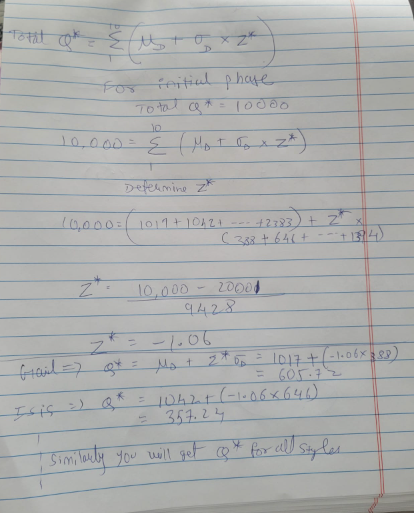 10
Total Q* = Σ ( μD + σD × Z* )
1
For initial phase
Total Q* = 10000
10
10,000 = Σ ( μD + σD × Z* )
1
Determine Z*
10,000 = ( 1017 + 1042 + ---- + 2383 ) + Z* ×
( 388 + 646 + --- + 1394 )
Z* = 10,000 - 20001
9428
Z* = -1.06
Gail => Q* = μD + Z* σD = 1017 + (-1.06 × 388)
= 605.72
Isis => Q* = 1042 + (-1.06 × 646)
= 357.24
Similarly you will get Q* for all styles